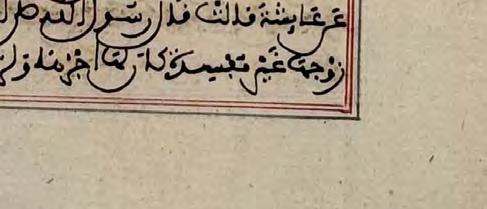 عن عايشة قالت قال رسول الله صل
زوجها غير مفسدة كان لها اجرها ولز